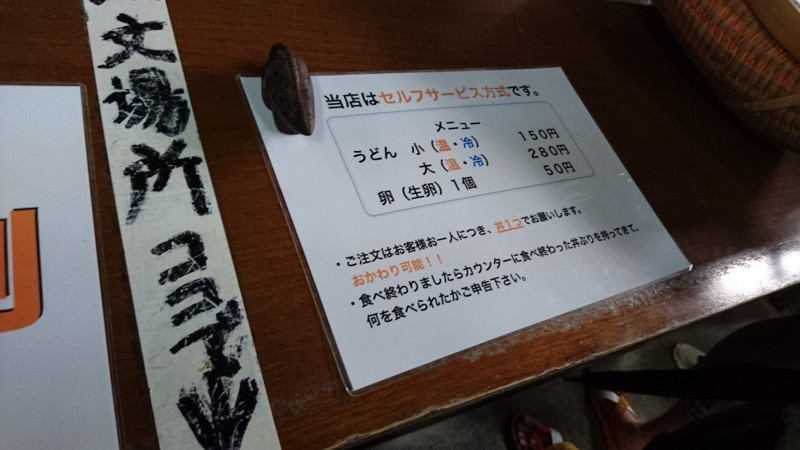 文場所 ココデ↓
当店はセルフサービス方式です。
メニュー
うどん 小（温・冷） 150円
大（温・冷） 280円
卵（生卵）1個 50円
・ご注文はお客様お一人につき、丼1つでお願いします。
おかわり可能！！
・食べ終わりましたらカウンターに食べ終わった丼ぶりを持ってきて、
何を食べられたかご申告下さい。